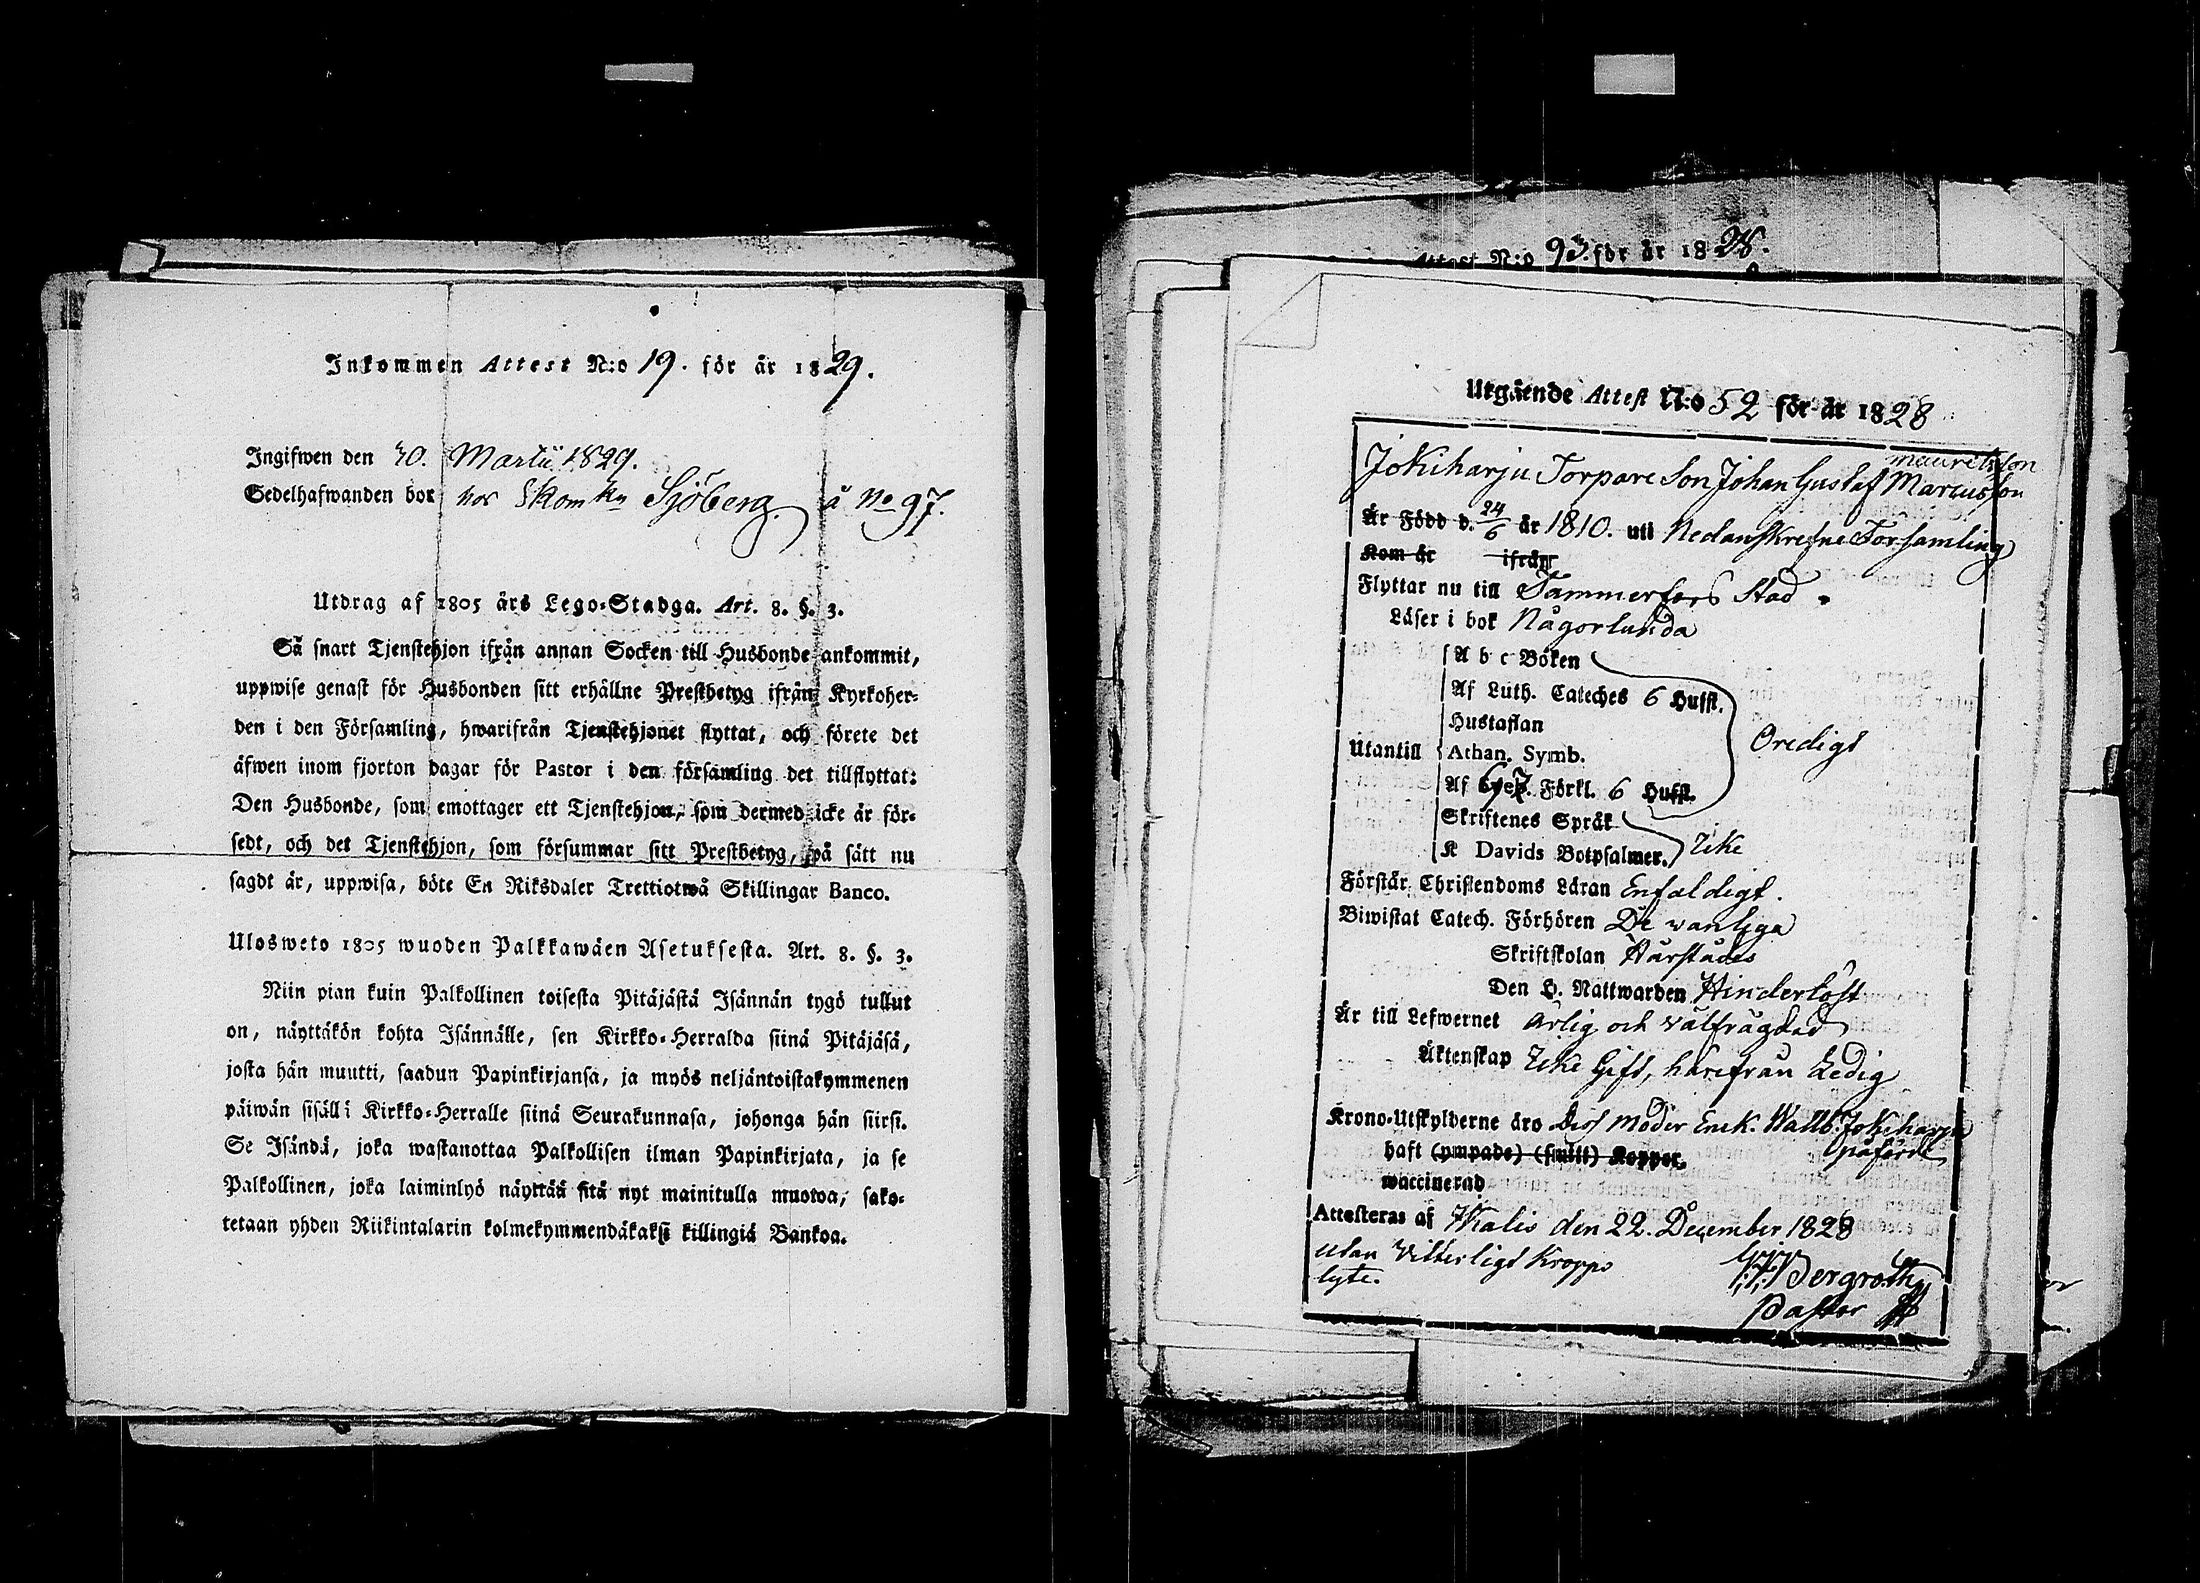 Inkommen Attest N:o 19. för år 1829.
Ingifwen den 30. Martii 1829.
Sedelhafwanden bor hos Skomkn Sjöberg å No 97.
Utdrag af 1805 års Lego-Stadga. Art. 8. §. 3.
Så snart Tjenstehjon ifrån annan Socken till Husbonde ankommit,
uppwise genast för Husbonden sitt erhållne Prestbetyg ifrån Kyrkoher-
den i den Församling, hwarifrån Tjenstehjonet flyttat, och förete det
äfwen inom fjorton dagar för Pastor i den församling det tillflyttat:
Den Husbonde, som emottager ett Tjenstehjon, som dermed icke är för-
sedt, och det Tjenstehjon, som försummar sitt Prestbetyg, på sätt nu
sagdt är, uppwisa, böte En Riksdaler Trettiotwå Skillingar Banco.
Ulosweto 1805 wuoden Palkkawäen Asetuksesta. Art. 8. §. 3.
Niin pian kuin Palkollinen toisesta Pitäjästä Isännän tygö tullut
on, näyttäkön kohta Isännälle, sen Kirkko-Herralda siinä Pitäjäsä,
josta hän muutti, saadun Papinkirjansa, ja myös neljäntoistakymmenen
päiwän sisäll: Kirkko-Herralle siinä Seurakunnasa, johonga hän siirsi.
Se Isändä, joka wastanottaa Palkollisen ilman Papinkirjata, ja se
Palkollinen, joka laiminlyö näyttää sitä nyt mainitulla muotoa, sako-
tetaan yhden Riikintalarin kolmekymmendäkaksi killingiä Bankoa.
Attest N:o 93. för år 1828.
Utgående Attest N:o 52 för år 1828
mauritsson
Jokiharju Torpare Son Johan Gustaf Marcusson
Är Född d. 24/6 år 1810. uti Nedanskrefne Församling
Kom år ifrån
Flyttar nu till Tammerfors Stad.
Läser i bok Någorlunda
A b c Boken
Af Luth. Cateches 6 Hufst.
Hustaflan
Oredigt
Utantill Athan. Symb.
Af Sveb. Förkl. 6 Hufst.
Skriftenes Språk
K Davids Botpsalmer. Icke
Förstår Christendoms Läran Enfaldigt.
Biwistat Catech. Förhören De vanliga
Skriftskolan Härstädes
Den H. Nattwarden Hinderlöst
Är till Lefwernet ärlig och välfrägdad
Äktenskap Icke Gift, härifrån Ledig
Krono-Utskylderne äro Dess Moder Enk. Wallb. Jokiharju
påförde
haft (ympade) (smitt) Koppor.
waccinerad
Attesteras af Ikalis den 22. December 1828
utan Vitterligt Kropps
lyte.
Bergroth
Pastor